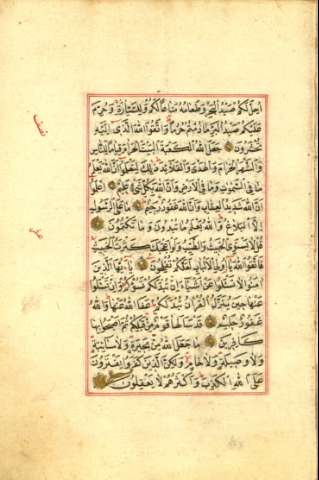 احل لكم صيد البحر وطعامه متاعا لكم وللسيارة وحرم
عليكم صيد البر ما دمتم حرما واتقوا الله الذى اليه
تحشرون جعل الله الكعبة البيت الحرام قياما للناس
والشهر الحرام والهدى والقلائد ذلك لتعلموا ان الله يعلم
ما فى السموات وما فى الارض وان الله بكل شىء عليم اعلموا
ان الله شديد العقاب وان الله غفور رحيم ما على الرسول
الا البلاغ والله يعلم ما تبدون وما تكتمون
قل لا يستوى الخبيث والطيب ولو اعجبك كثرة الخبيث
فاتقوا الله يا اولى الالباب لعلكم تفلحون يا ايها الذين
امنوا لا تسئلوا عن اشياء ان تبد لكم تسؤكم وان تسئلوا
عنها حين ينزل القران تبد لكم عفا الله عنها والله
غفور حليم قد سالها قوم من قبلكم ثم اصبحوا بها
كافرين ما جعل الله من بحيرة ولا سائبة
ولا وصيلة ولا حام ولكن الذين كفروا يفترون
على الله الكذب واكثرهم لا يعقلون